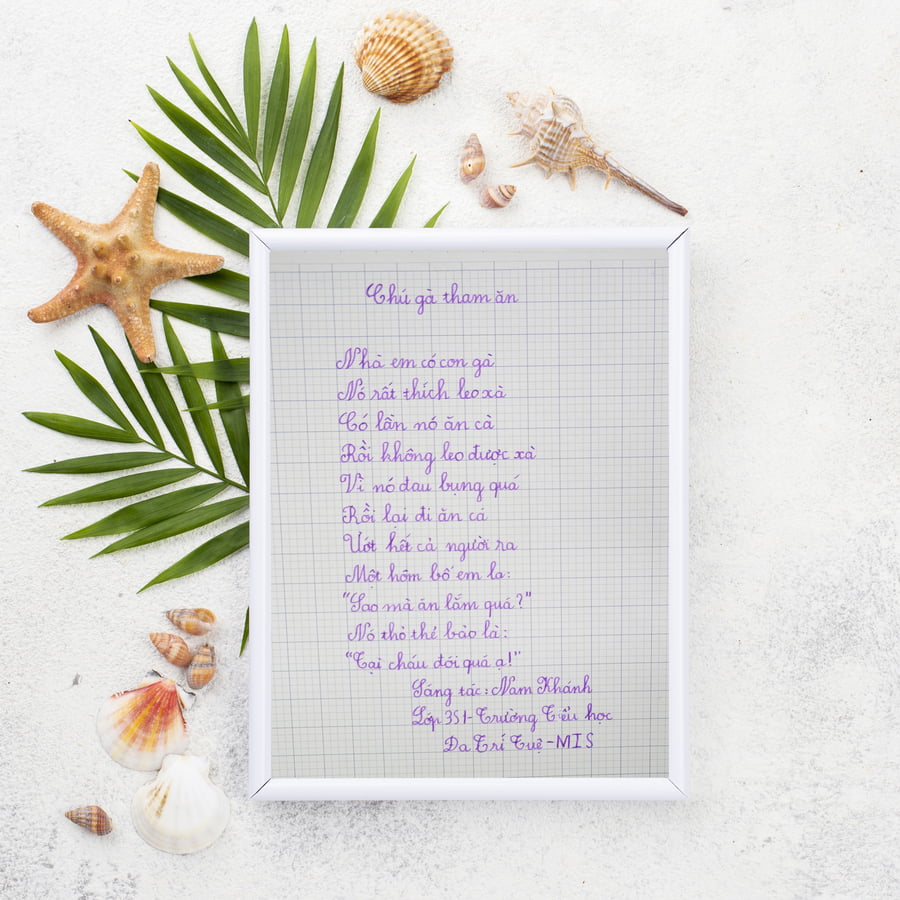 Chú gà tham ăn
Nhà em có con gà
Nó rất thích leo xà
Có lần nó ăn cà
Rồi không leo được xà
Vì nó đau bụng quá
Rồi lại đi ăn cá
Ướt hết cả người ra
Một hôm bố em la:
"Sao mà ăn lắm quá?"
Nó thỏ thẻ bảo là:
"Tại cháu đói quá ạ!"
Sáng tác: Nam Khánh
Lớp 3S1- Trường Tiểu học
Đa Trí Tuệ - MIS